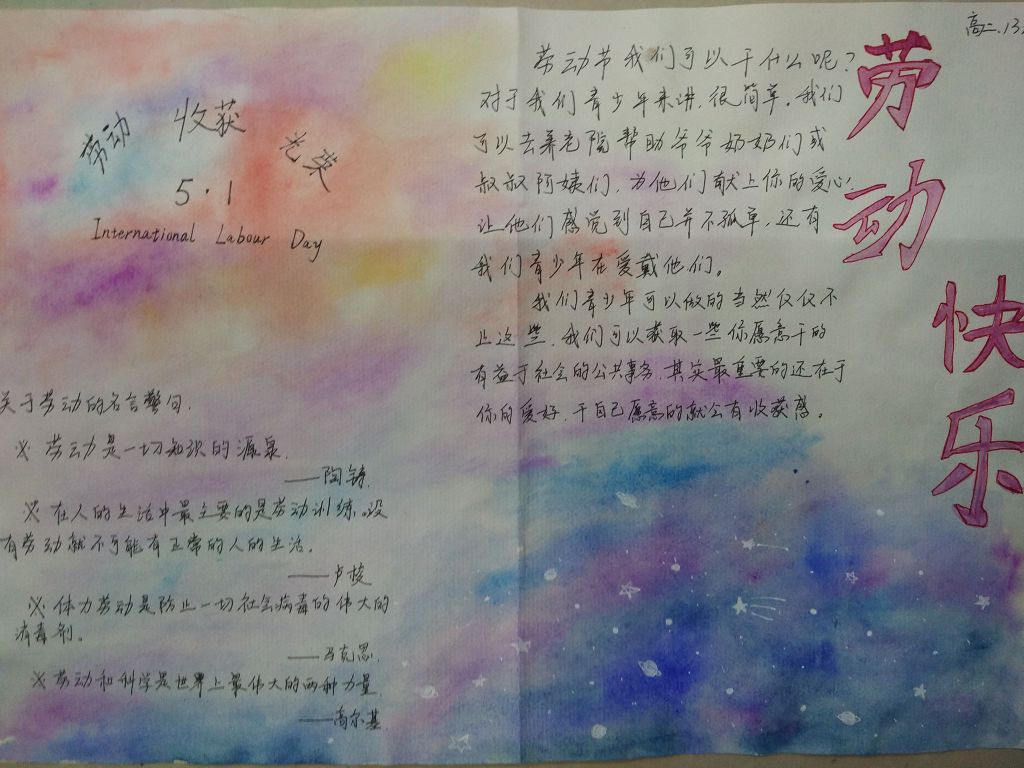 劳动 收获 光荣
5·1
International Labour Day
关于劳动的名言警句.
※ 劳动是一切知识的源泉.
——陶铸.
※在人的生活中最主要的是劳动训练。没
有劳动就不可能有正常的人的生活。
——卢梭
※体力劳动是防止一切社会病毒的伟大的
消毒剂。
——马克思.
※劳动和科学是世界上最伟大的两种力量
——高尔基
高二.13
劳动快乐
劳动节我们可以干什么呢?
对于我们青少年来讲.很简单.我们
可以去养老院帮助爷爷奶奶们或
叔叔阿姨们,为他们献上你的爱心!
让他们感觉到自己并不孤单,还有
我们青少年在爱戴他们。
我们青少年可以做的当然仅仅不
止这些.我们可以获取一些你愿意干的
有益于社会的公共事务.其实最重要的还在于
你的爱好,干自己愿意的就会有收获感。